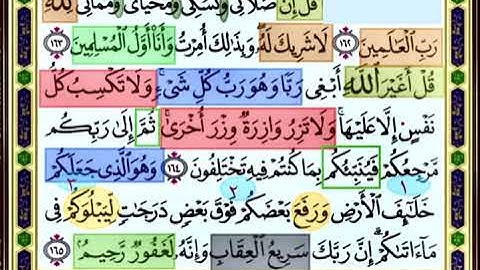 قُلْ إِنَّ صَلَاتِى وَنُسُكِى وَمَحْيَاىَ وَمَمَاتِى لِلَّهِ
رَبِّ ٱلْعَٰلَمِينَ ١٦٢ لَا شَرِيكَ لَهُۥ وَبِذَٰلِكَ أُمِرْتُ وَأَنَا۠ أَوَّلُ ٱلْمُسْلِمِينَ ١٦٣
قُلْ أَغَيْرَ ٱللَّهِ أَبْغِى رَبًّا وَهُوَ رَبُّ كُلِّ شَىْءٍ وَلَا تَكْسِبُ كُلُّ
نَفْسٍ إِلَّا عَلَيْهَا وَلَا تَزِرُ وَازِرَةٌ وِزْرَ أُخْرَىٰ ثُمَّ إِلَىٰ رَبِّكُم
مَّرْجِعُكُمْ فَيُنَبِّئُكُم بِمَا كُنتُمْ فِيهِ تَخْتَلِفُونَ ١٦٤ وَهُوَ ٱلَّذِى جَعَلَكُمْ
١ ٢ ٣
خَلَٰٓئِفَ ٱلْأَرْضِ وَرَفَعَ بَعْضَكُمْ فَوْقَ بَعْضٍ دَرَجَٰتٍ لِّيَبْلُوَكُمْ فِى
مَآ ءَاتَىٰكُمْ إِنَّ رَبَّكَ سَرِيعُ ٱلْعِقَابِ وَإِنَّهُۥ لَغَفُورٌ رَّحِيمٌۢ ١٦٥